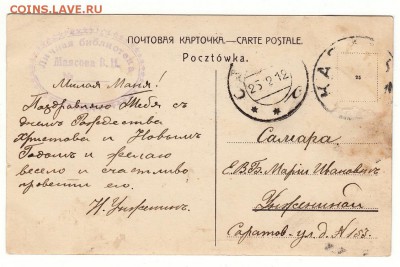 COINS.LAVE.RU
ПОЧТОВАЯ КАРТОЧКА.—CARTE POSTALE.
Pocztówka.
библиотека
25 2 12
Милая Маня!
Поздравляю Тебя съ
днемъ Рождества
Христова и Новымъ
Годомъ и желаю
весело и счастливо
провести его.
Самара
Е.В.Б. Маріи Ивановнѣ
Унжениной
Саратов. ул. д. N 153.